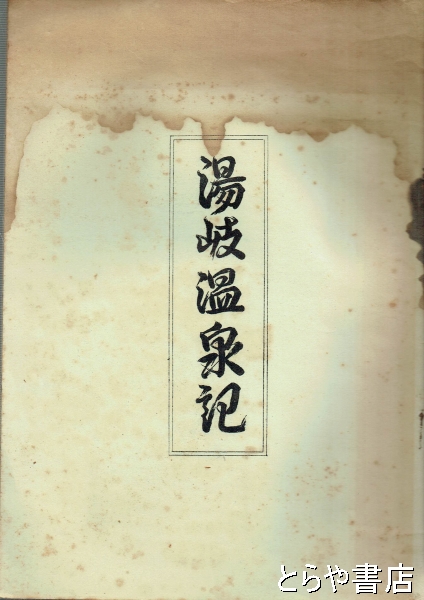 湯岐温泉記
とらや書店